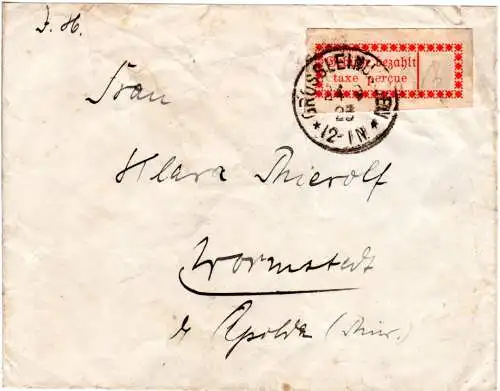 F. H.
Gebühr bezahlt
taxe perçue
GROSSLEINUNGEN
23
*12-1N*
Frau
Klara Thierolf
Wormstedt
b/ Apolda (Thür.)